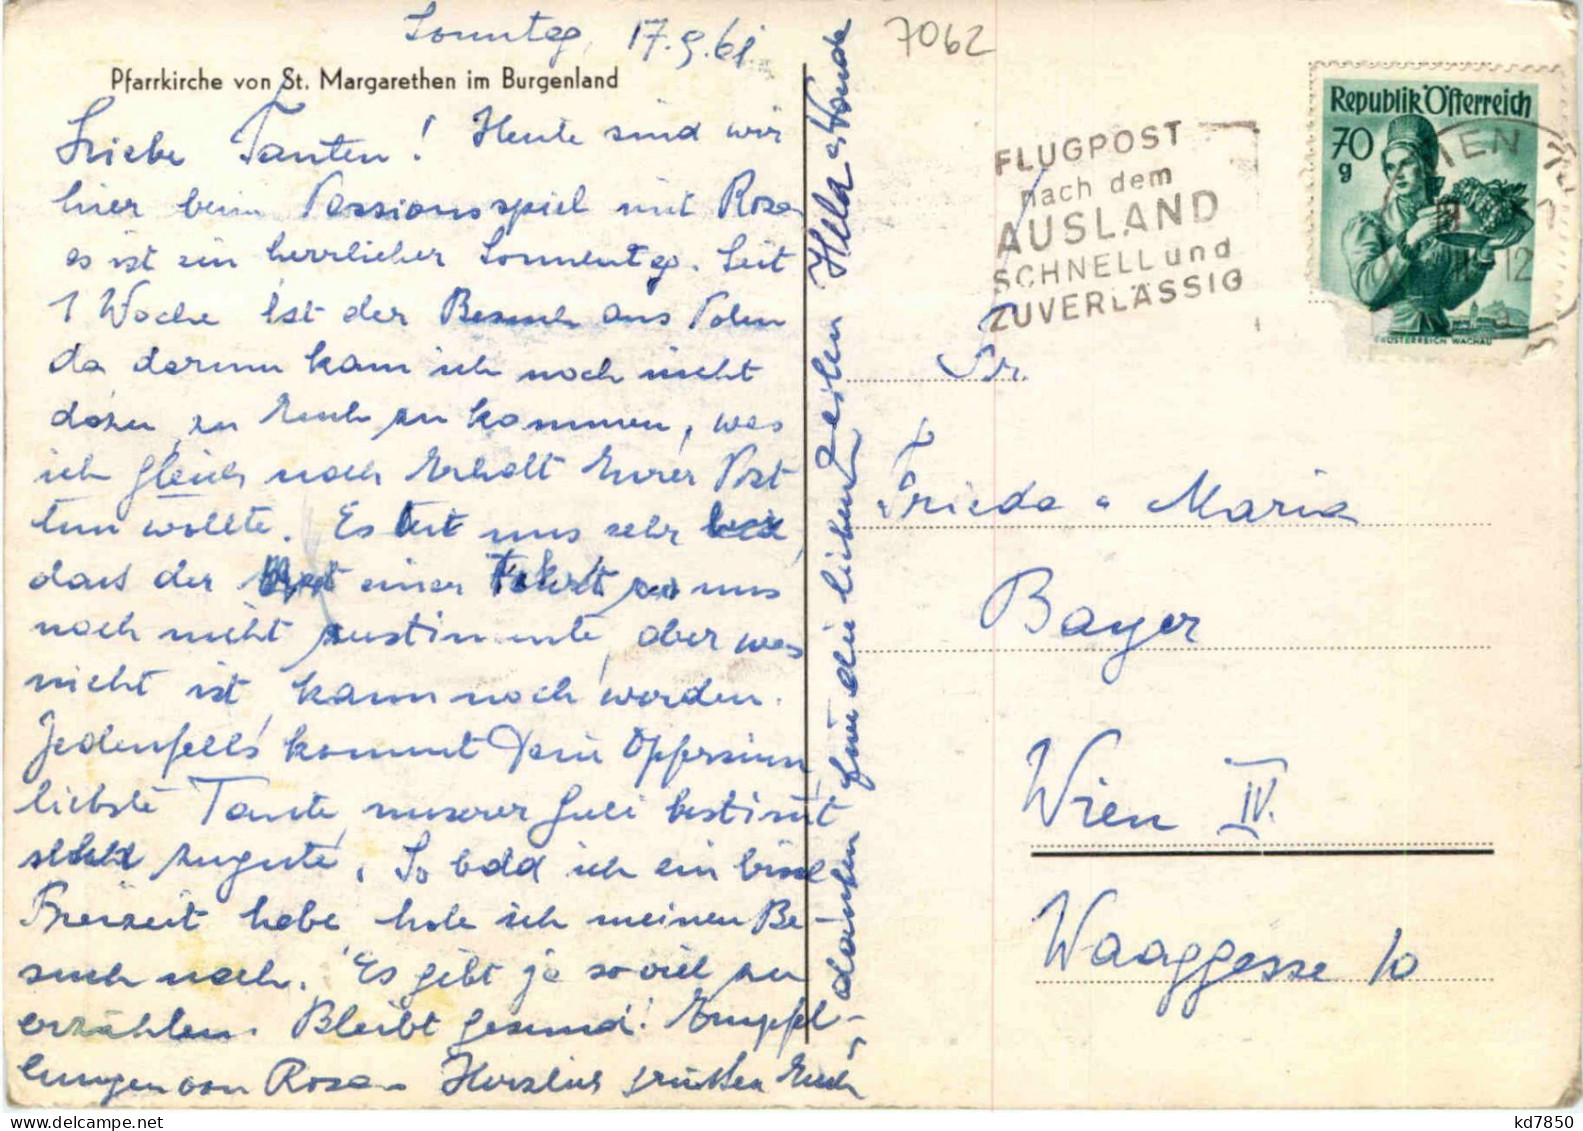 Sonntag, 17.9.61.
7062
Pfarrkirche von St. Margarethen im Burgenland
Liebe Tanten! Heute sind wir
hier beim Passionsspiel mit Rosa
es ist ein herrlicher Sonnentag. Seit
1 Woche ist der Besuch aus Polen
da darum kam ich noch nicht
dazu zu Euch zu kommen, was
ich gleich nach Erhalt Eurer Post
tun wollte. Es tut uns sehr leid,
dass der einer Fahrt zu uns
noch nicht zustimmte, aber was
nicht ist kann noch werden.
Jedenfalls kommt Dein Opfersinn,
liebste Tante, unserer Juli bestimmt
zugute. So bald ich ein bissl
Freizeit habe hole ich meinen Be-
such nach. Es gibt ja so viel zu
erzählen. Bleibt gesund! Empfeh-
lungen von Rosa. Herzlich grüßen Euch
danken für die lieben Zeilen Hela &
FLUGPOST
nach dem
AUSLAND
SCHNELL und
ZUVERLÄSSIG
Republik Österreich
70
g
WIEN
12
ÖSTERREICH WACHAU
Fr.
Frieda u Maria
Bayer
Wien IV.
Waaggasse 10
kd7850